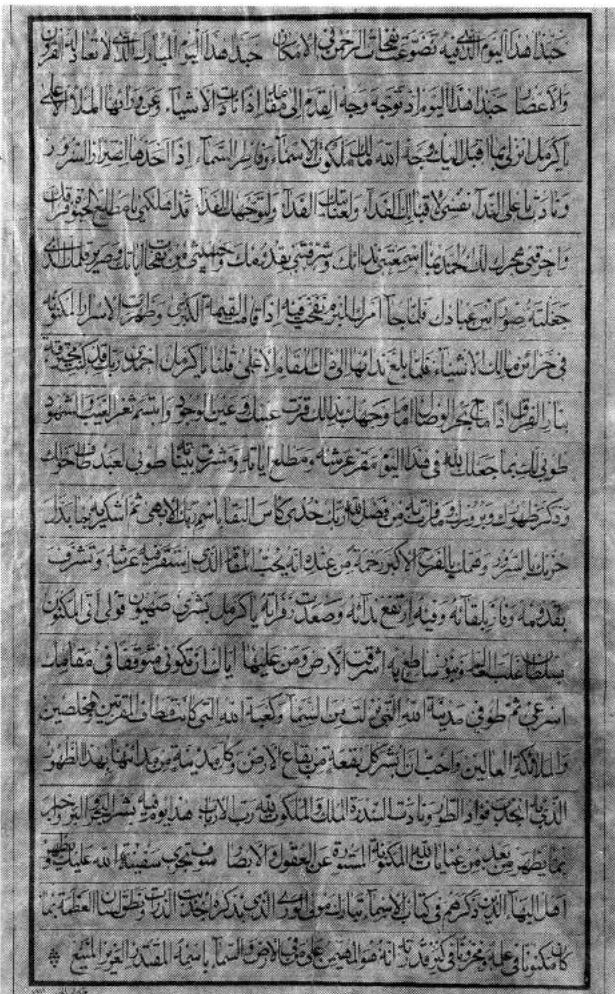 حبذا هذا اليوم الذي فيه تضوعت نفحات الرحمن في الامكان حبذا هذا اليوم المبارك الذي لا تعادله القرون
والاعصار حبذا هذا اليوم اذ توجه وجه القدم الى مقامه اذا نادت الاشياء وعن ورائها الملأ الاعلى
يا كرمل انزلي بما اقبل اليك وجه الله مالك ملكوت الاسماء وفاطر السماء اذا اخذها اهتزاز السرور
ونادت باعلى الندآء نفسي لاقبالك الفدآء ولعنايتك الفدآء ولتوجهك الفدآء قد اهلكني يا مطلع الحيوة فراقك
واحرقني هجرك لك الحمد بما اسمعتني ندائك وشرفتني بقدومك واحييتني من نفحات ايامك وصرير قلمك الذي
جعلته صورا بين عبادك فلما جآء امرك المبرم نفخت فيه اذا قامت القيمة الكبرى وظهرت الاسرار المكنونة
في خزائن مالك الاشيآء فلما بلغ ندائها الى ذاك المقام الاعلى قلنا يا كرمل احمدي ربك قد كنت محترقة
بنار الفراق اذا ماج بحر الوصال امام وجهك بذلك قرت عينك وعين الوجود وابتسم ثغر الغيب والشهود
طوبى لك بما جعلك الله في هذا اليوم مقر عرشه ومطلع اياته ومشرق بيناته طوبى لعبد طاف حولك
وذكر ظهورك وبروزك وما فزت به من فضل الله ربك خذي كأس البقاء باسم ربك الابهى ثم اشكريه بما بدل
حزنك بالسرور وهمك بالفرح الاكبر رحمة من عنده انه يحب المقام الذي استقر فيه عرشه وتشرفت
بقدومه وفاز بلقائه وفيه ارتفع ندائه وصعدت زفراته يا كرمل بشري صهيون قولي اتى المكنون
بسلطان غلب العالم وبنور ساطع به اشرقت الارض ومن عليها اياك ان تكوني متوقفة في مقامك
اسرعي ثم طوفي مدينة الله التي نزلت من السمآء وكعبة الله التي كانت مطاف المقربين والمخلصين
والملائكة العالين واحب ان ابشر كل بقعة من بقاع الارض وكل مدينة من مدائنها بهذا الظهور
الذي به انجذب فواد الطور ونادت السدرة الملك والملكوت لله رب الارباب هذا يوم فيه بشر البحر والبر واخبر
بما يظهر من بعد من عنايات الله المكنونة المستورة عن العقول والابصار سوف تجري سفينة الله عليك ويظهر
اهل البهآء الذين ذكرهم في كتاب الاسمآء تبارك مولى الورى الذي بذكره انجذبت الذرات ونطق لسان العظمة بما
كان مكنونا في علمه ومخزونا في كنز قدرته انه هو المهيمن على من في الارض والسمآء باسمه المقتدر العزيز المنيع